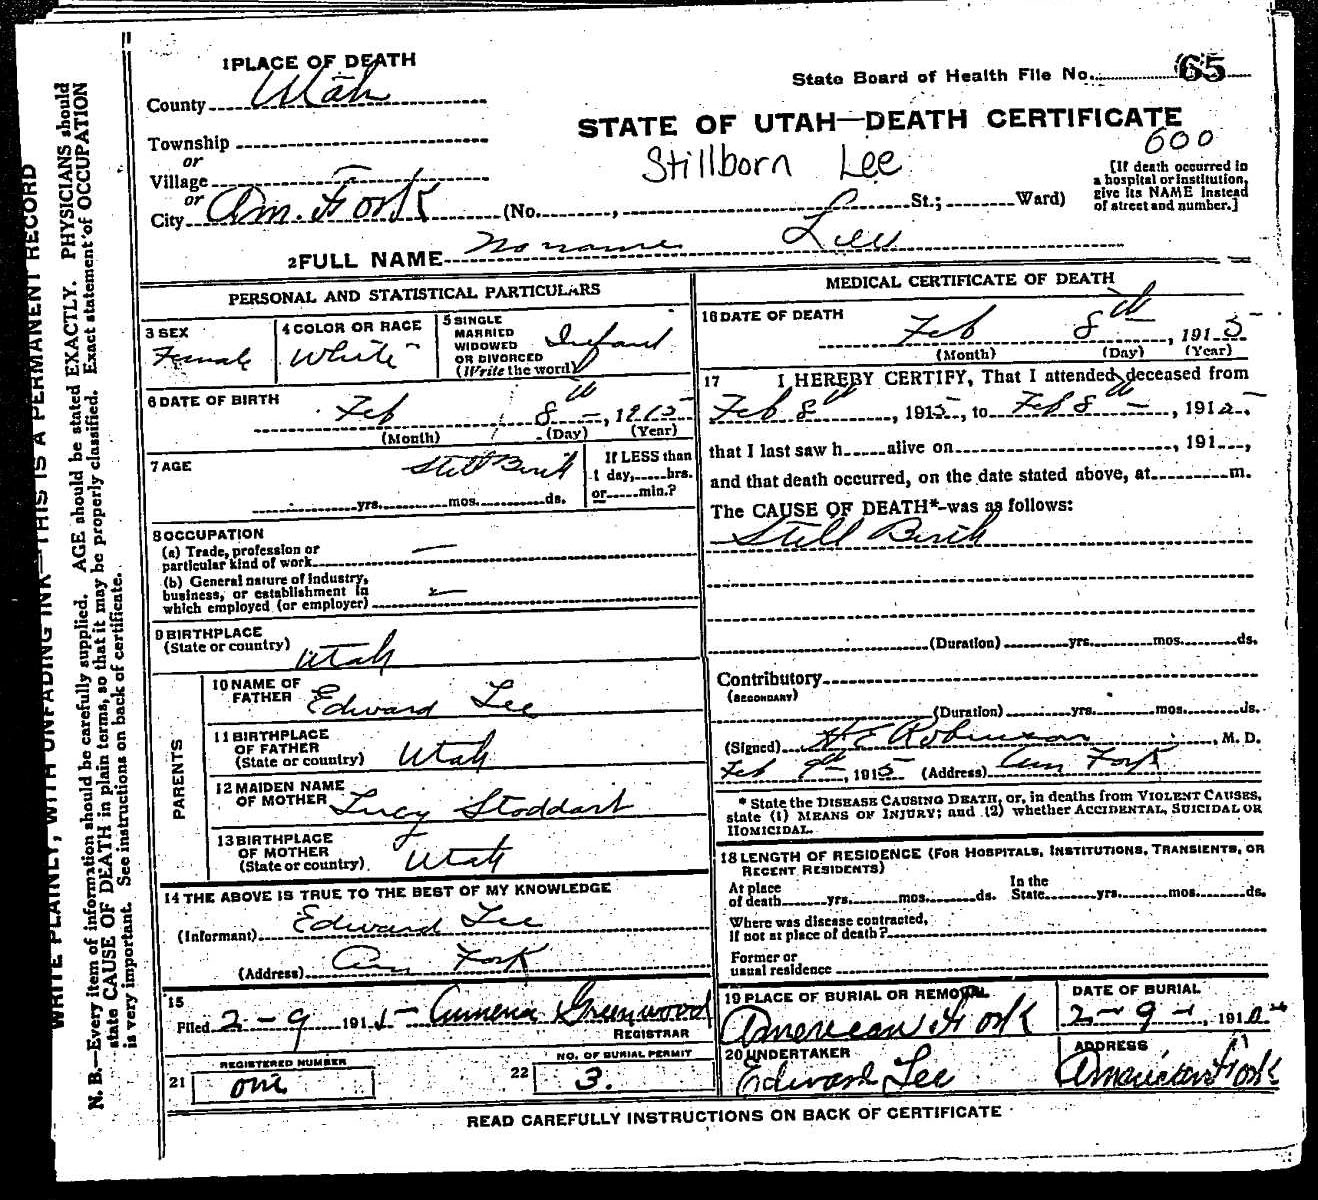 1 PLACE OF DEATH
County Utah
Township
or
Village
or
City Am. Fork (No. , St.; Ward)
State Board of Health File No. 65
STATE OF UTAH—DEATH CERTIFICATE
600
Stillborn Lee
[If death occurred in
a hospital or institution,
give its NAME instead
of street and number.]
2 FULL NAME No name Lee
PERSONAL AND STATISTICAL PARTICULARS
3 SEX
Female
4 COLOR OR RACE
White
5 SINGLE
MARRIED
WIDOWED
OR DIVORCED
(Write the word)
Infant
6 DATE OF BIRTH
Feb 8th, 1915
(Month) (Day) (Year)
7 AGE
Still Birth
yrs. mos. ds.
If LESS than
1 day, hrs.
or min.?
8 OCCUPATION
(a) Trade, profession or
particular kind of work —
(b) General nature of Industry,
business, or establishment in
which employed (or employer) —
9 BIRTHPLACE
(State or country) Utah
PARENTS
10 NAME OF
FATHER Edward Lee
11 BIRTHPLACE
OF FATHER
(State or country) Utah
12 MAIDEN NAME
OF MOTHER Lucy Stoddart
13 BIRTHPLACE
OF MOTHER
(State or country) Utah
14 THE ABOVE IS TRUE TO THE BEST OF MY KNOWLEDGE
(Informant) Edward Lee
(Address) Am Fork
15
Filed 2-9 191 Greenwood
REGISTRAR
REGISTERED NUMBER
21 one
NO. OF BURIAL PERMIT
22 3.
MEDICAL CERTIFICATE OF DEATH
16 DATE OF DEATH
Feb 8th, 1915
(Month) (Day) (Year)
17 I HEREBY CERTIFY, That I attended deceased from
Feb 8th, 1915, to Feb 8th, 1915,
that I last saw h alive on , 191 ,
and that death occurred, on the date stated above, at m.
The CAUSE OF DEATH* was as follows:
Still Birth
(Duration) yrs. mos. ds.
Contributory
(SECONDARY)
(Duration) yrs. mos. ds.
(Signed) H E Robinson, M. D.
Feb 9th, 1915 (Address) Am Fork
* State the DISEASE CAUSING DEATH, or, in deaths from VIOLENT CAUSES,
state (1) MEANS OF INJURY; and (2) whether ACCIDENTAL, SUICIDAL OR
HOMICIDAL.
18 LENGTH OF RESIDENCE (FOR HOSPITALS, INSTITUTIONS, TRANSIENTS, OR
RECENT RESIDENTS)
At place
of death yrs. mos. ds.
In the
State yrs. mos. ds.
Where was disease contracted,
if not at place of death?
Former or
usual residence
19 PLACE OF BURIAL OR REMOVAL
American Fork
DATE OF BURIAL
2-9-, 191
20 UNDERTAKER
Edward Lee
ADDRESS
American Fork
READ CAREFULLY INSTRUCTIONS ON BACK OF CERTIFICATE
WRITE PLAINLY, WITH UNFADING INK—THIS IS A PERMANENT RECORD
N. B.—Every item of information should be carefully supplied. AGE should be stated EXACTLY. PHYSICIANS should
state CAUSE OF DEATH in plain terms, so that it may be properly classified. Exact statement of OCCUPATION
is very important. See instructions on back of certificate.